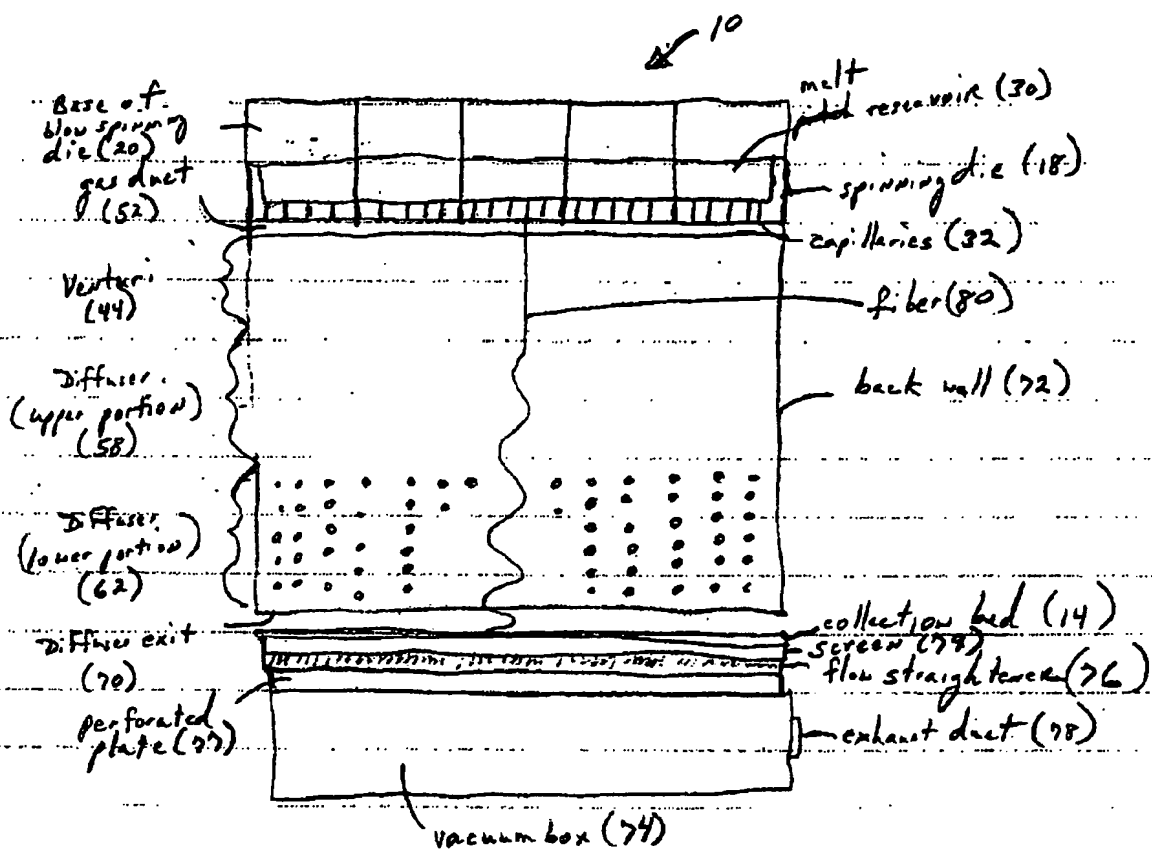 10
Base of
blow spinning
die (20)
gas duct
(52)
Venturi
(44)
Diffuser
(upper portion)
(58)
Diffuser
(lower portion)
(62)
Diffuser exit
(70)
perforated
plate (77)
melt
pitch reservoir (30)
spinning die (18)
capillaries (32)
fiber (80)
back wall (72)
collection bed (14)
screen (79)
flow straightener (76)
exhaust duct (78)
vacuum box (74)